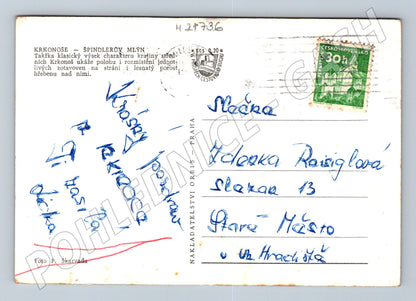 H 27736
KRKONOŠE - ŠPINDLERŮV MLÝN
Takřka klasický výsek charakteru krajiny střed-
ních Krkonoš ukáže polohu i rozmístění jednot-
livých notavoven na stráni i lesnatý porost
hřebenu nad nimi.
Krásný pozdrav
z Krkonoš
Ti zasílá
Jitka
Foto P. Skarvada
NAKLADATELSTVÍ ORBIS - PRAHA
ČESKOSLOVENSKO
30 h
Slečna
Zdenka Raisiglová
Slazan 13
Staré Město
u Uh. Hradiště
POHLEDNICE